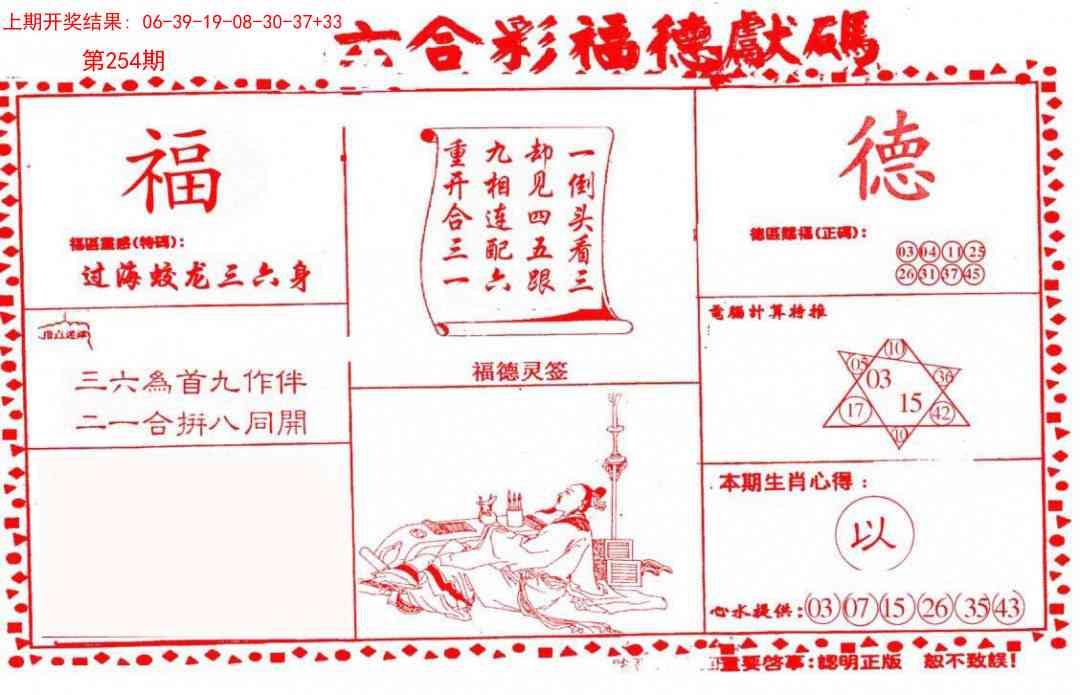 上期开奖结果：06-39-19-08-30-37+33
第254期
六合彩福德獻碼
福
福區靈感(特碼)：
过海蛟龙三六身
三六為首九作伴
二一合拚八同開
一倒头看三
却见四五跟
九相连配六
重开合三一
福德灵签
德
德區賜福(正碼)：
03 04 11 25
26 31 37 45
電腦計算特推
10
05
36
03
15
17
42
10
本期生肖心得：
以
心水提供：03 07 15 26 35 43
重要啓事：認明正版 恕不致誤！